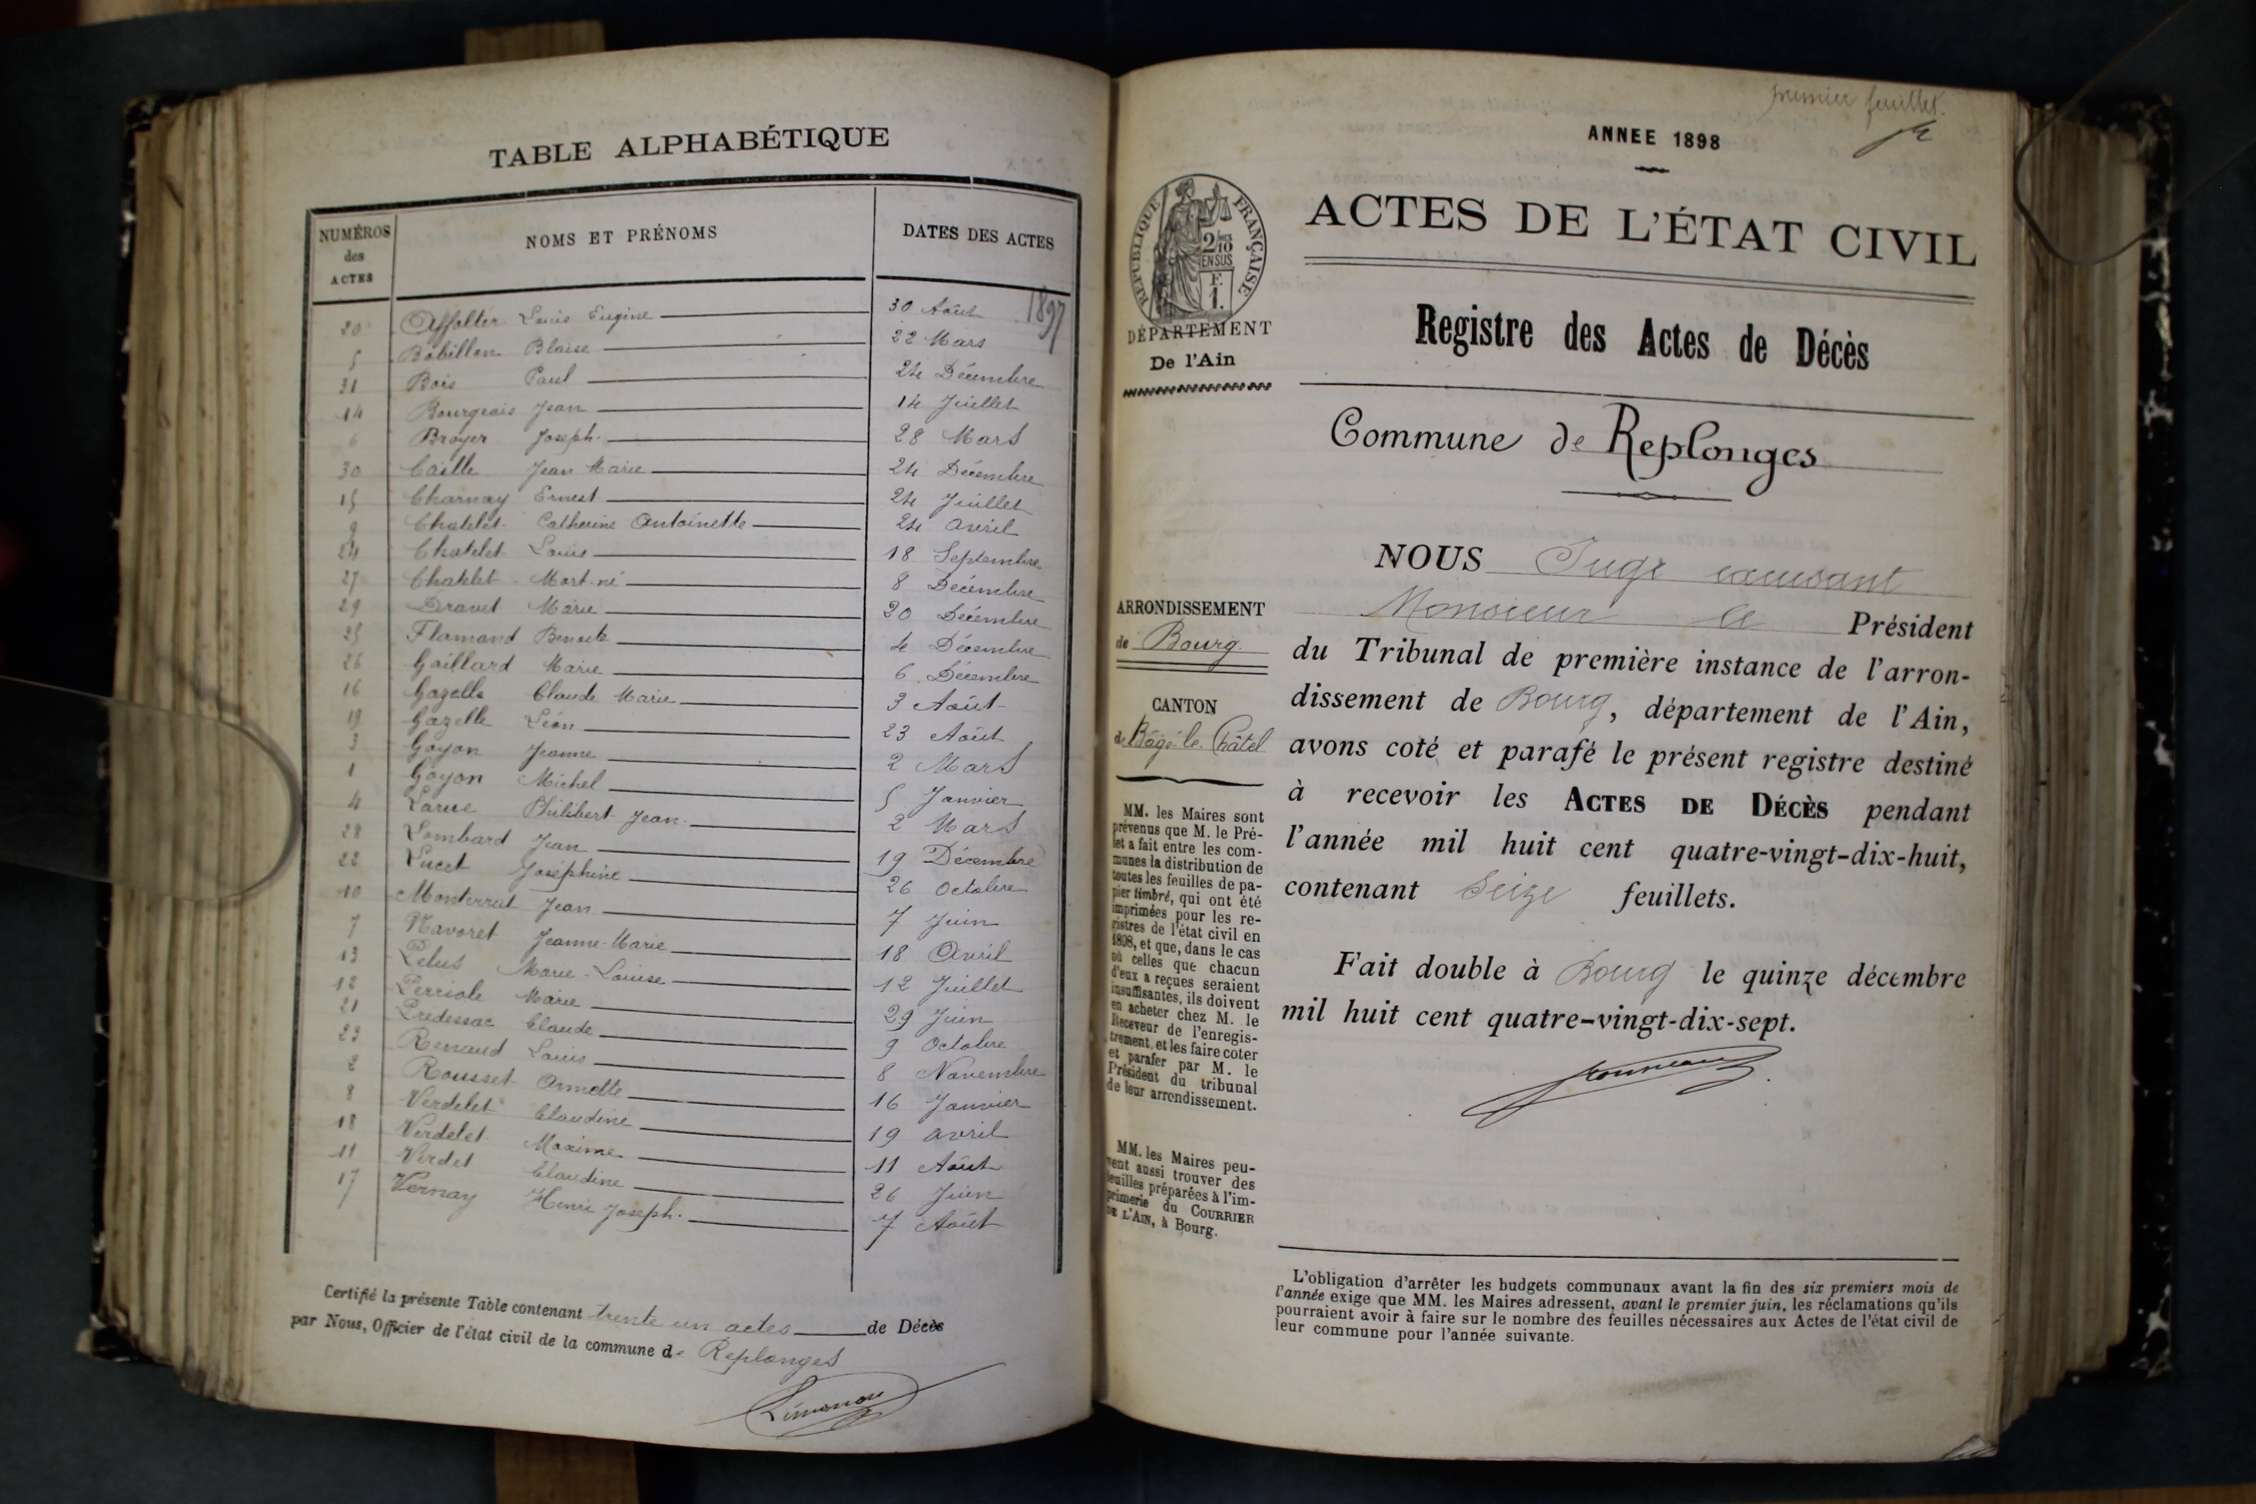 TABLE ALPHABÉTIQUE
NUMÉROS des ACTES
NOMS ET PRÉNOMS
DATES DES ACTES
1897
20 Affolter Louis Eugène 30 Août
5 Bobillon Blaise 22 Mars
31 Bois Paul 24 Décembre
14 Bourgeois Jean 14 Juillet
6 Broyer Joseph. 28 Mars
30 Caille Jean Marie 24 Décembre
15 Charnay Ernest 24 Juillet
9 Chatelet Catherine Antoinette 24 avril
24 Chatelet Louis 18 Septembre
27 Chatelet Mort-né 8 Décembre
29 Dravet Marie 20 Décembre
25 Flamand Benoite 4 Décembre
26 Gaillard Marie 6 Décembre
16 Gazelle Claude Marie 3 Août
19 Gazelle Léon 23 Août
3 Goyon Jeanne 2 Mars
1 Goyon Michel 5 Janvier
4 Larue Philibert Jean. 2 Mars
28 Lombard Jean 19 Décembre
22 Lucet Joséphine 26 Octobre
10 Monterrat Jean 7 Juin
7 Navoret Jeanne-Marie 18 Avril
13 Pelus Marie-Louise 12 Juillet
12 Perriole Marie 29 Juin
21 Predessac Claude 9 Octobre
23 Renaud Louis 8 Novembre
2 Rousset Annette 16 Janvier
8 Verdelet Claudine 19 avril
18 Verdelet Maxime 11 Août
11 Verdet Claudine 26 Juin
17 Vernay Henri Joseph. 7 Août
Certifié la présente Table contenant trente un actes de Décès
par Nous, Officier de l'état civil de la commune de Replonges
premier feuillet.
ANNEE 1898
RÉPUBLIQUE FRANÇAISE
2/10 EN SUS
DÉPARTEMENT
De l'Ain
ACTES DE L'ÉTAT CIVIL
Registre des Actes de Décès
Commune de Replonges
ARRONDISSEMENT
de Bourg
CANTON
de Bâgé-le-Châtel
MM. les Maires sont
prévenus que M. le Pré-
fet a fait entre les com-
munes la distribution de
toutes les feuilles de pa-
pier timbré, qui ont été
imprimées pour les re-
gistres de l'état civil en
1898, et que, dans le cas
où celles que chacun
d'eux a reçues seraient
insuffisantes, ils doivent
en acheter chez M. le
Receveur de l'enregis-
trement, et les faire coter
et parafer par M. le
Président du tribunal
de leur arrondissement.
MM. les Maires peu-
vent aussi trouver des
feuilles préparées à l'im-
primerie du COURRIER
DE L'AIN, à Bourg.
NOUS Juge
Monsieur le Président
du Tribunal de première instance de l'arron-
dissement de Bourg, département de l'Ain,
avons coté et parafé le présent registre destiné
à recevoir les ACTES DE DÉCÈS pendant
l'année mil huit cent quatre-vingt-dix-huit,
contenant Seize feuillets.
Fait double à Bourg le quinze décembre
mil huit cent quatre-vingt-dix-sept.
L'obligation d'arrêter les budgets communaux avant la fin des six premiers mois de
l'année exige que MM. les Maires adressent, avant le premier juin, les réclamations qu'ils
pourraient avoir à faire sur le nombre des feuilles nécessaires aux Actes de l'état civil de
leur commune pour l'année suivante.